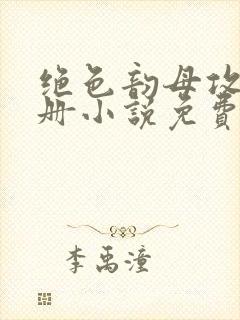 绝色韵母攻
册小说免费
李禹潼